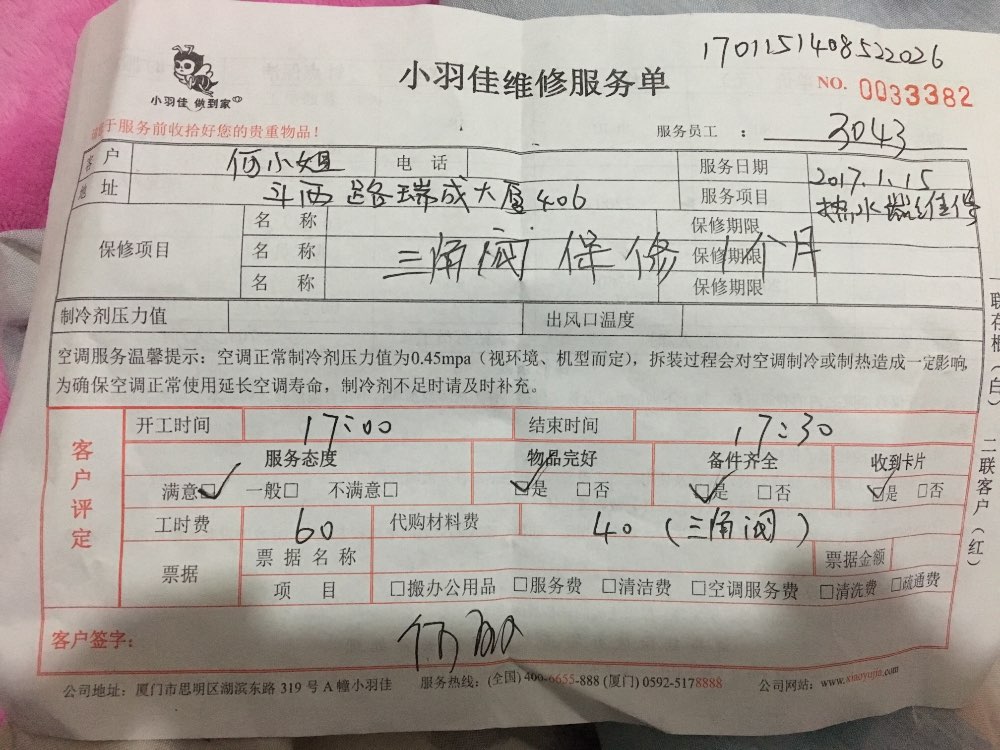 1701151408522026
小羽佳 做到家
小羽佳维修服务单
NO. 0033382
于服务前收拾好您的贵重物品！
服务员工 ： 3043
客户 何小姐 电话 服务日期 2017.1.15
地址 斗西路瑞成大厦406 服务项目 热水器维修
保修项目
名称 保修期限
名称 三角阀 保修 1个月 保修期限
名称 保修期限
制冷剂压力值 出风口温度
空调服务温馨提示：空调正常制冷剂压力值为0.45mpa（视环境、机型而定），拆装过程会对空调制冷或制热造成一定影响，
为确保空调正常使用延长空调寿命，制冷剂不足时请及时补充。
客户评定
开工时间 17:00 结束时间 17:30
服务态度 物品完好 备件齐全 收到卡片
满意☑ 一般□ 不满意□ ☑是 □否 ☑是 □否 ☑是 □否
工时费 60 代购材料费 40（三角阀）
票据
票据名称 票据金额
项目 □搬办公用品 □服务费 □清洁费 □空调服务费 □清洗费 □疏通费
客户签字：
公司地址：厦门市思明区湖滨东路 319 号 A 幢小羽佳 服务热线：(全国) 400-6655-888 (厦门) 0592-5178888 公司网站：www.xiaoyujia.com
联存根（白） 二联客户（红）